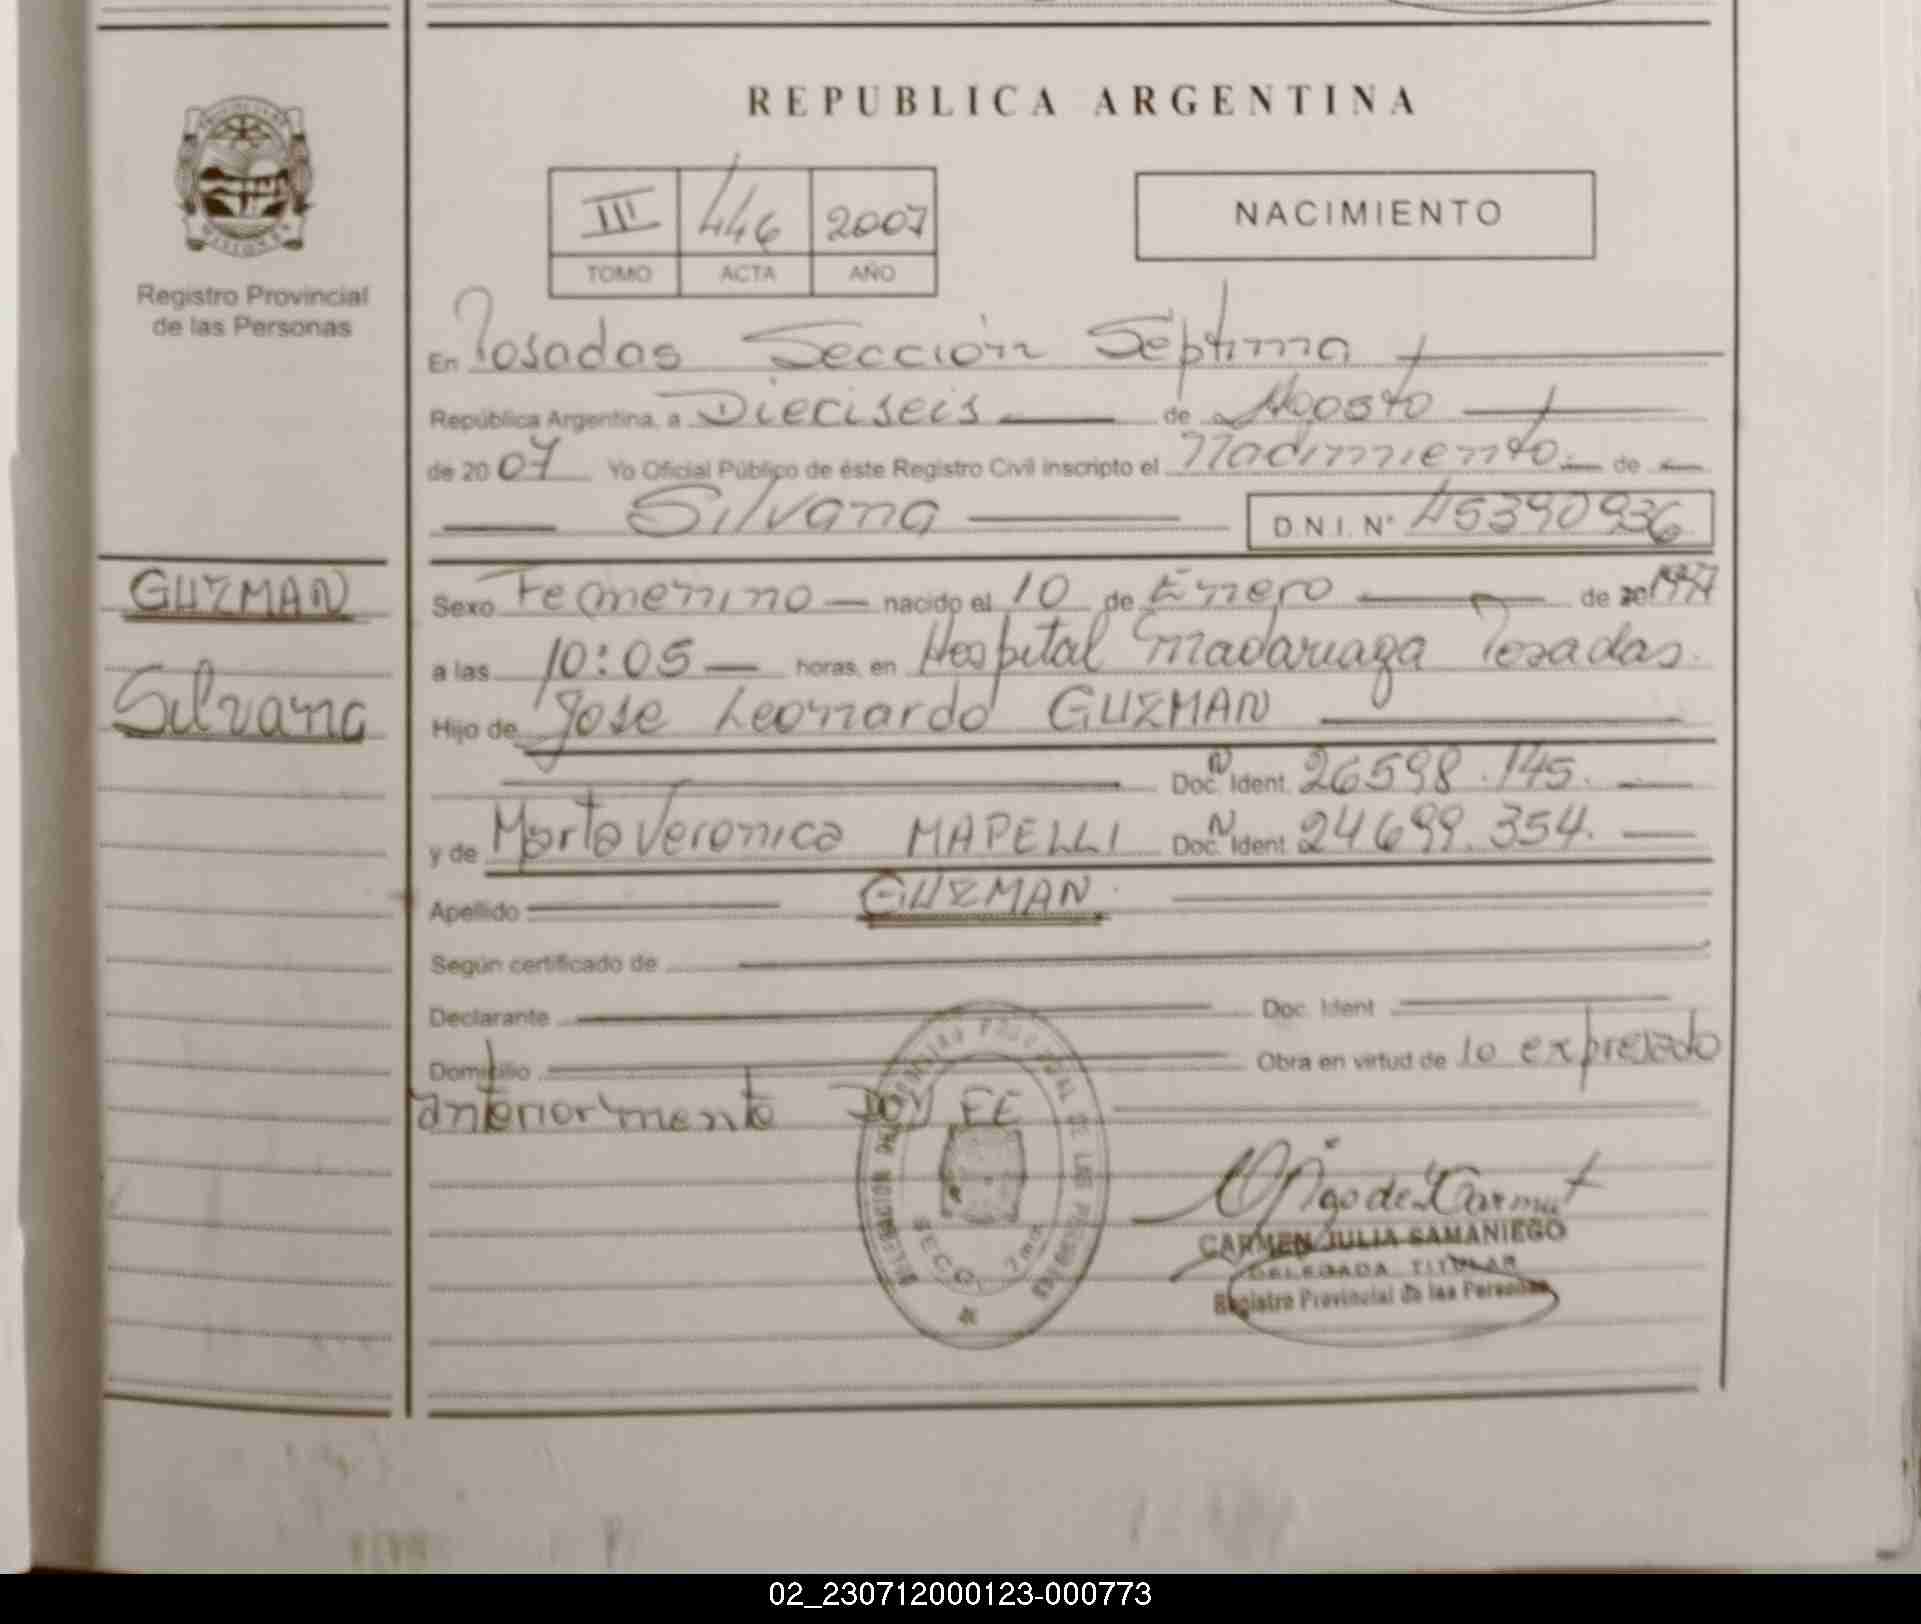 REPUBLICA ARGENTINA
III 446 2007
TOMO ACTA AÑO
NACIMIENTO
Registro Provincial
de las Personas
En Posadas Sección Séptima
República Argentina, a Dieciseis de Agosto
de 2007 Yo Oficial Público de éste Registro Civil inscripto el Nacimiento de
Silvana D.N.I. N° 45390936
GUZMAN
Silvana
Sexo Femenino nacido el 10 de Enero de 20
a las 10:05 horas, en Hospital Madariaga Posadas.
Hijo de Jose Leonardo GUZMAN
Doc. N Ident. 26598.145.
y de Marta Veronica MAPELLI Doc. N Ident. 24699.354.
Apellido GUZMAN.
Según certificado de
Declarante Doc. Ident
Domicilio Obra en virtud de lo expresado
anteriormente DOY FE
DELEGACION REGISTRO PROVINCIAL DE LAS PERSONAS
SECC. 7ma
CARMEN JULIA SAMANIEGO
DELEGADA TITULAR
Registro Provincial de las Personas
02_230712000123-000773